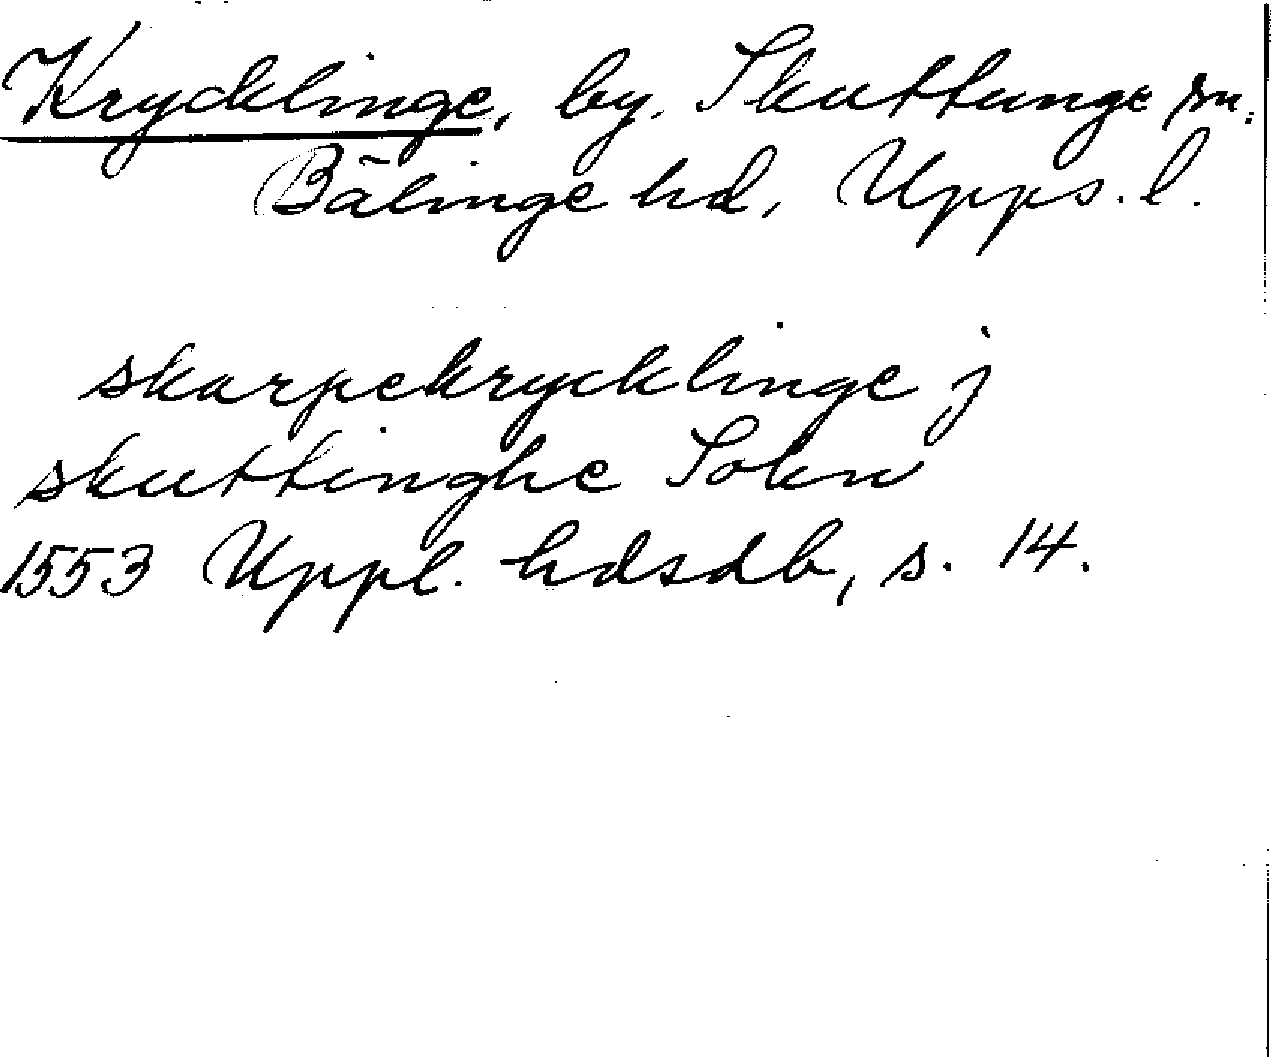 Krycklinge, by. Skuttunge sn.
Bälinge hd, Upps. l.
skarpekrycklinge j
skuttinghe Sokn
1553 Uppl. hdsdb, s. 14.